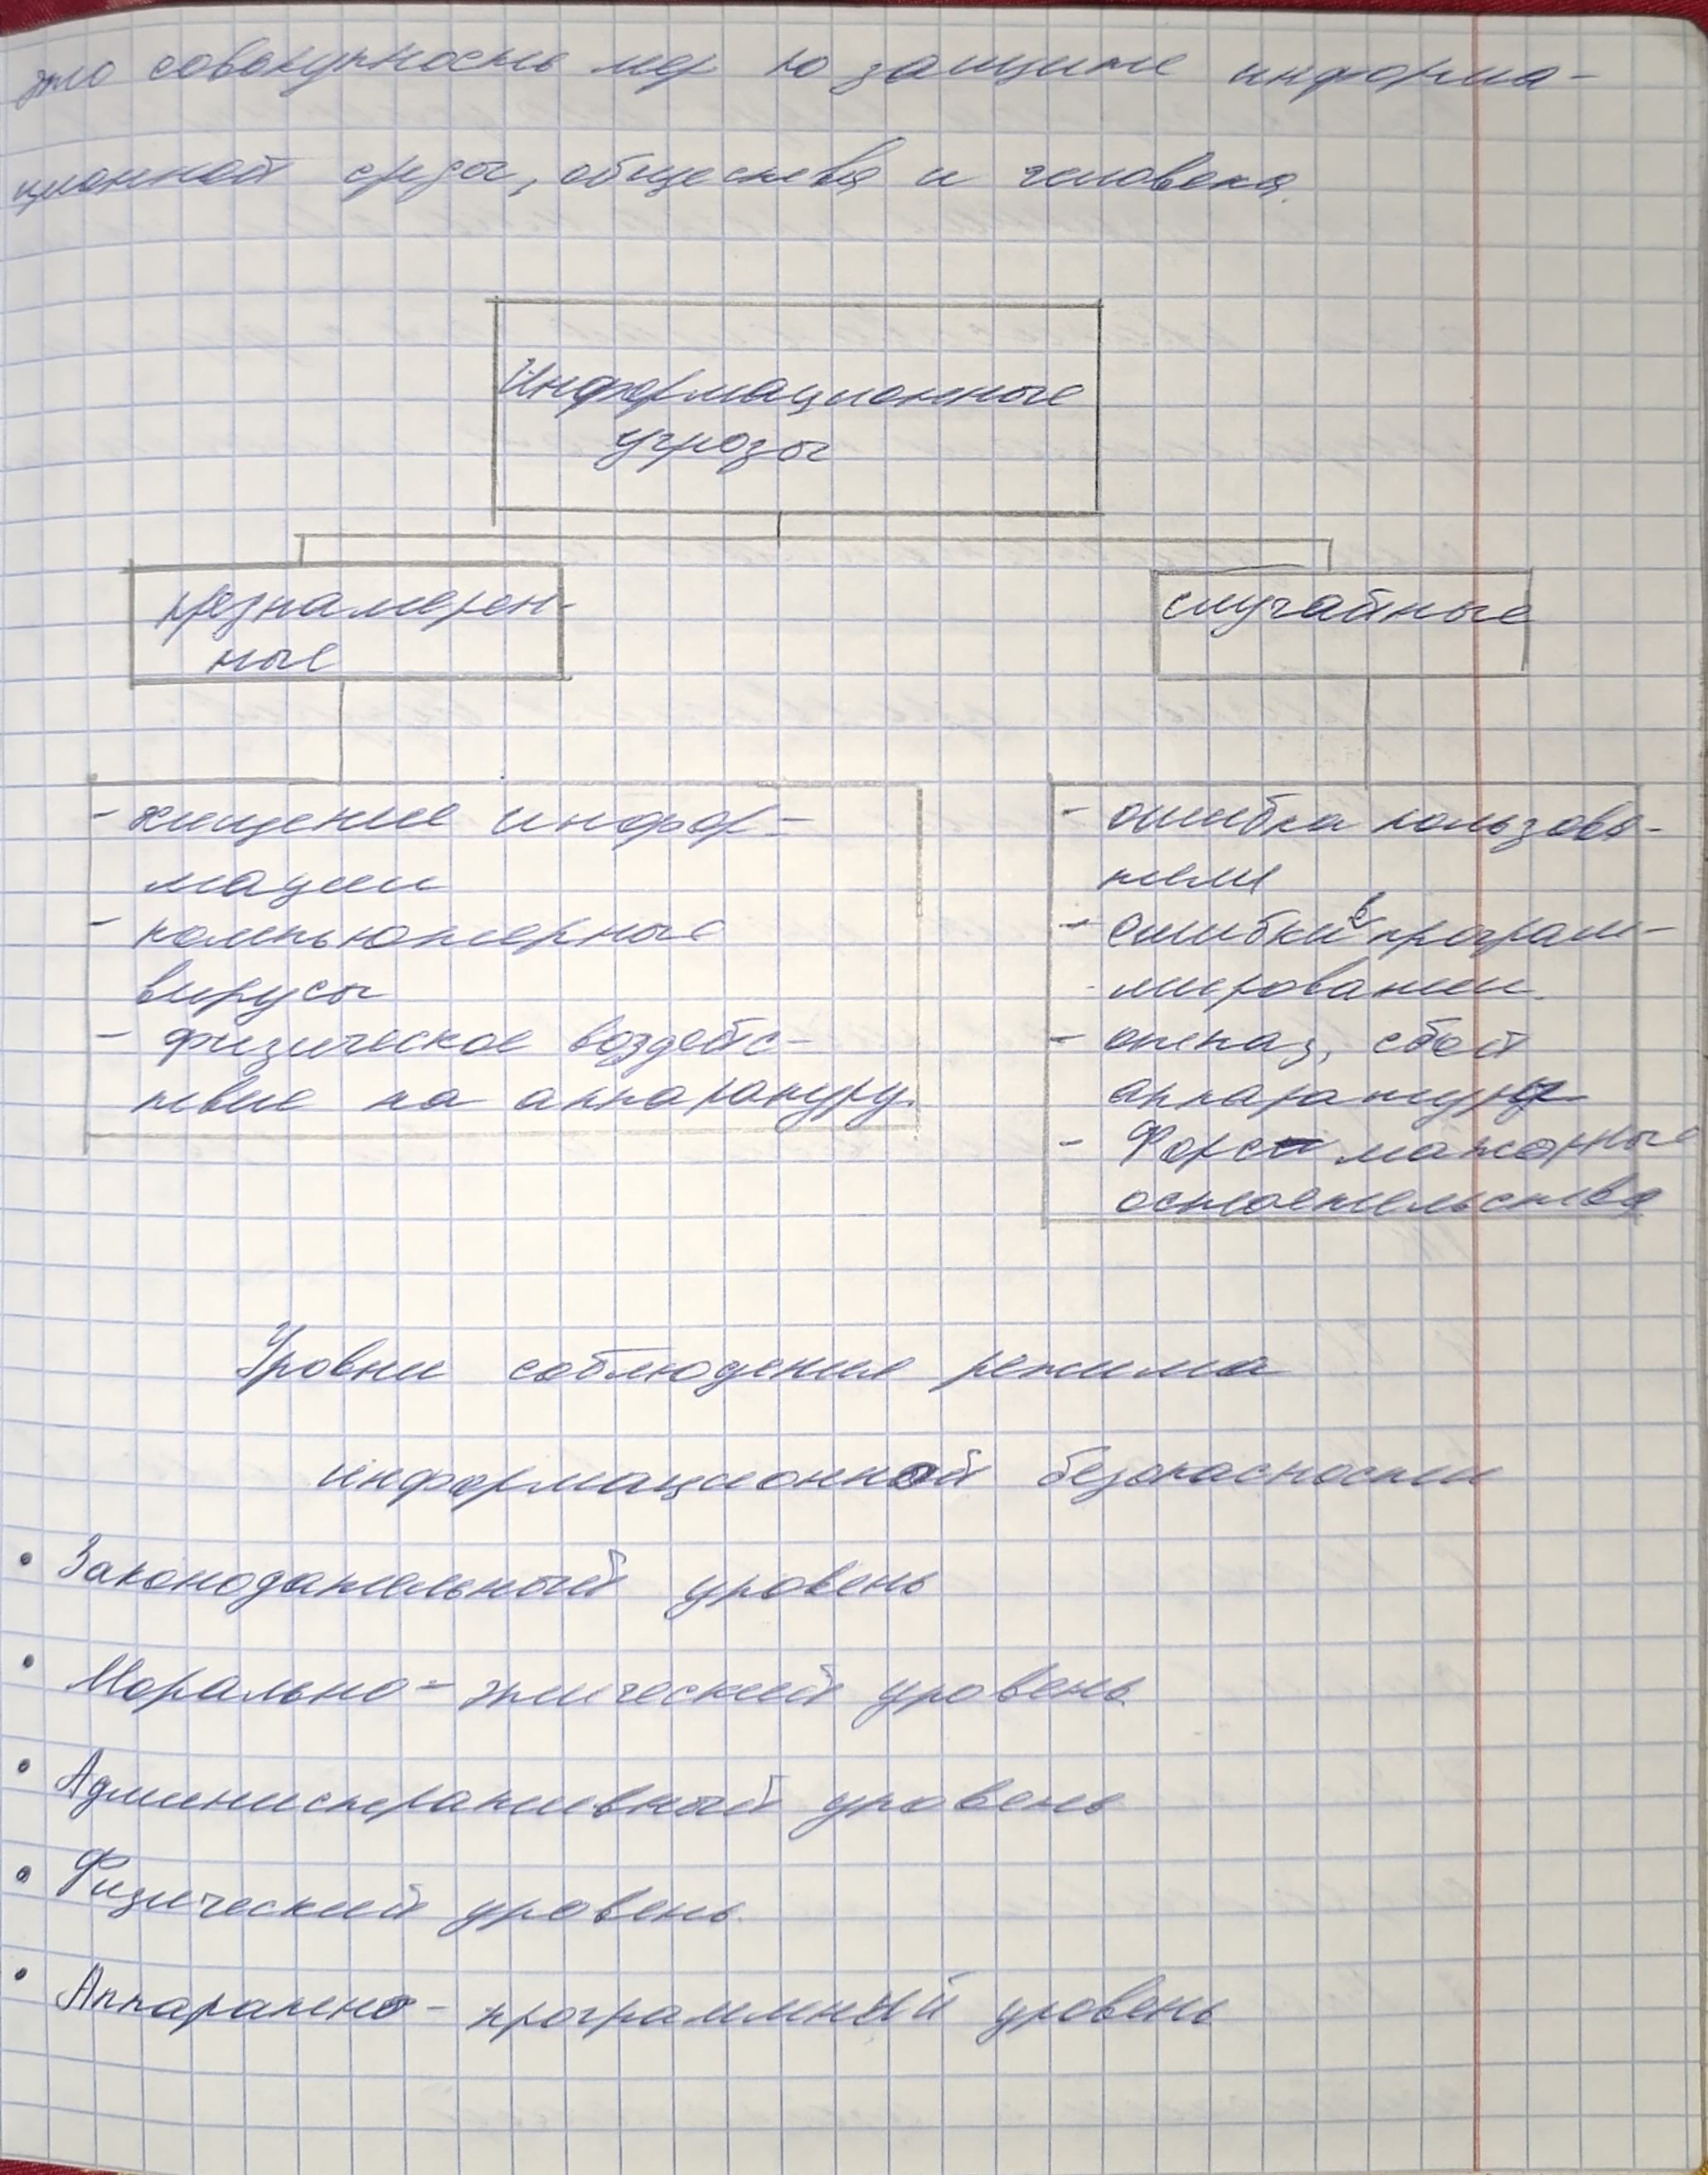 это совокупность мер по защите информа-
ционной среды, общества и человека.
Информационные
угрозы
преднамерен-
ные
случайные
- хищение инфор-
мации
- компьютерные
вирусы
- физическое воздейс-
твие на аппаратуру.
- ошибка пользова-
теля
- ошибки в програм-
мировании.
- отказ, сбой
аппаратуры
- Форс мажорные
остоятельства
Уровни соблюдения режима
информационной безопасности
• Законодательный уровень
• Морально-этический уровень
• Административный уровень
• Физический уровень
• Аппаратно-программный уровень